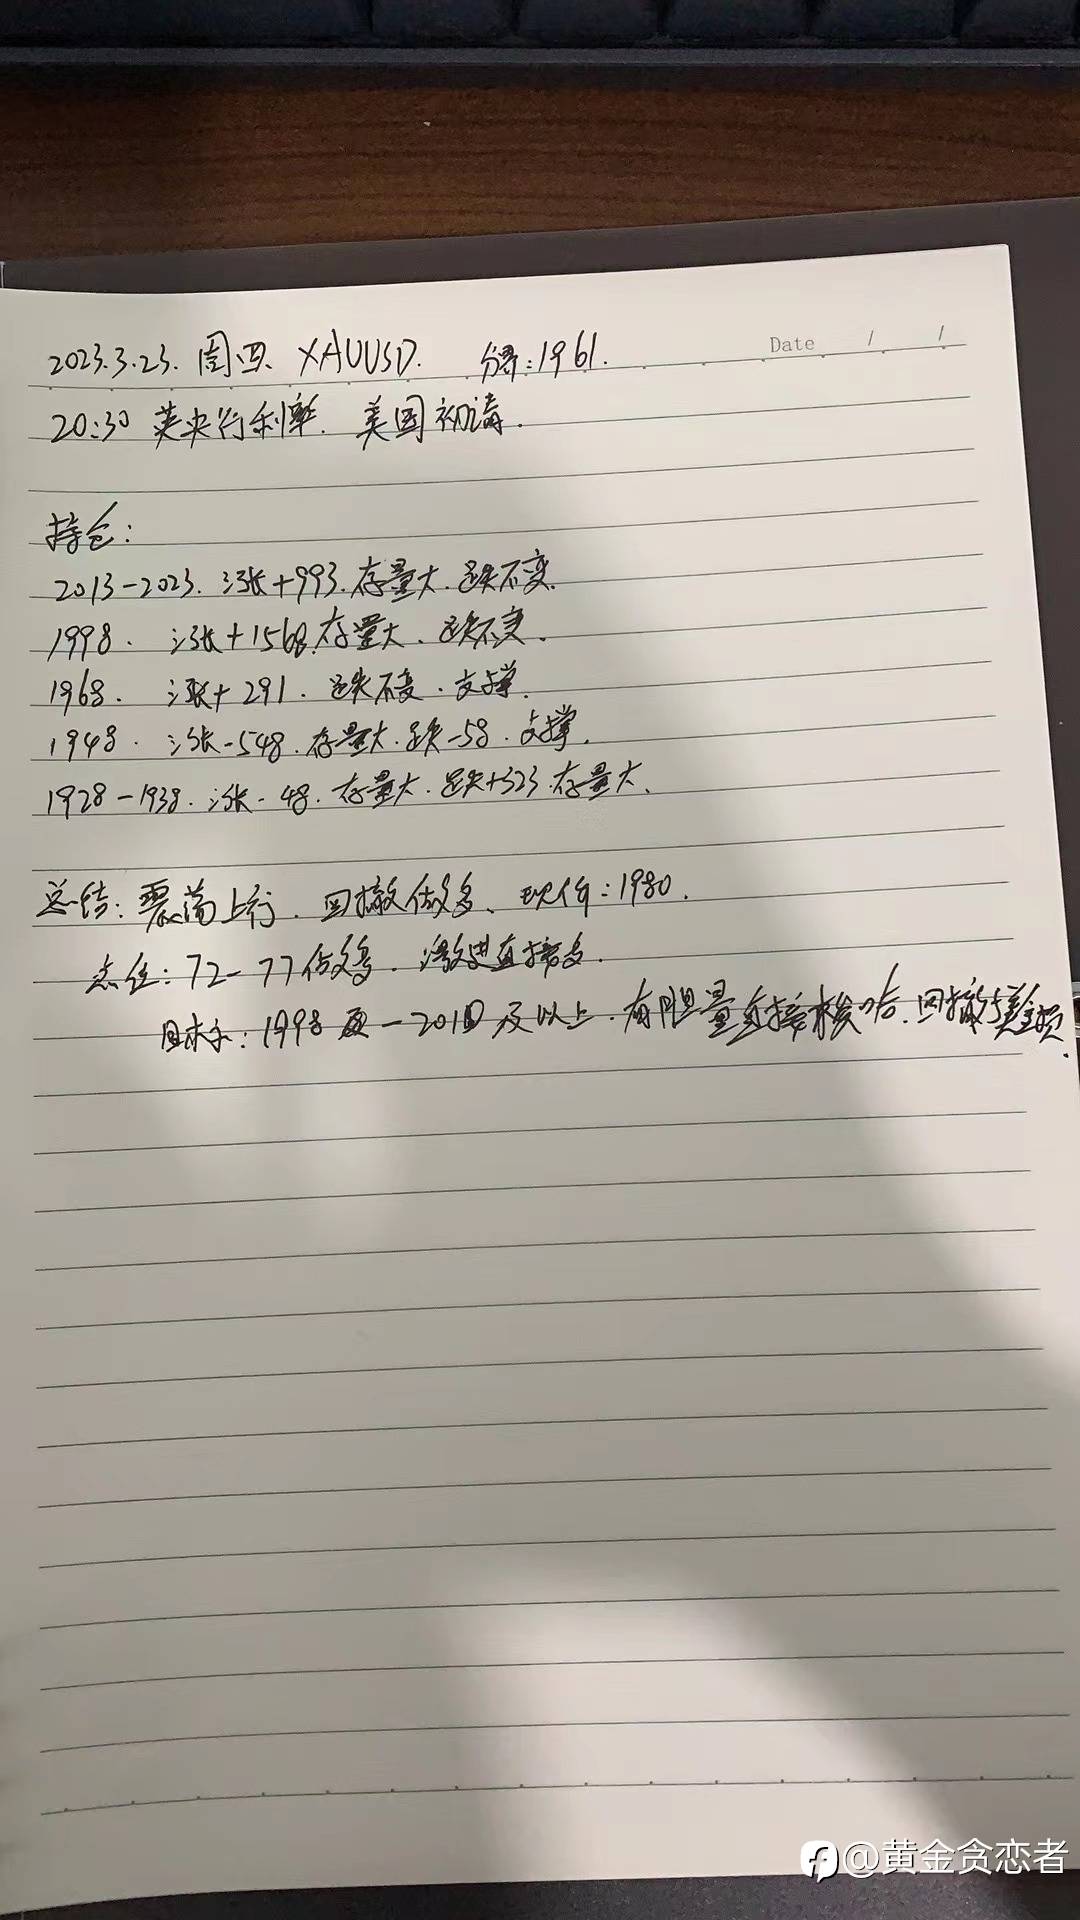 2023.3.23. 周四. XAUUSD. 分界:1961.
Date / /
20:30 英央行利率. 美国初请.
持仓:
2013-2023. 涨+993. 存量大. 跌不变.
1998. 涨+1568. 存量大. 跌不变.
1968. 涨+291. 跌不变. 支撑.
1948. 涨-548. 存量大. 跌-58. 支撑.
1928-1938. 涨-48. 存量大. 跌+323. 存量大.
总结: 震荡上行. 回撤做多. 现价:1980.
点位:72-77做多. 激进直接多.
目标: 1998 - 2010 及以上. 有胆量直接梭哈. 回撤
@黄金贪恋者